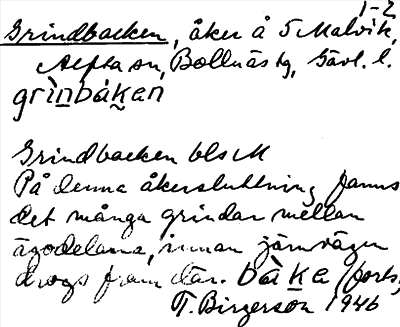 1-2
Grindbacken, åker å 5 Malvik,
Alfta sn, Bollnäs tg, Gävl. l.
grìnbáken
Grindbacken bls M
På denna åkersluttning fanns
det många grindar mellan
ägodelarna, innan järnvägen
drogs fram där. bàke (forts,
T. Birgerson 1946